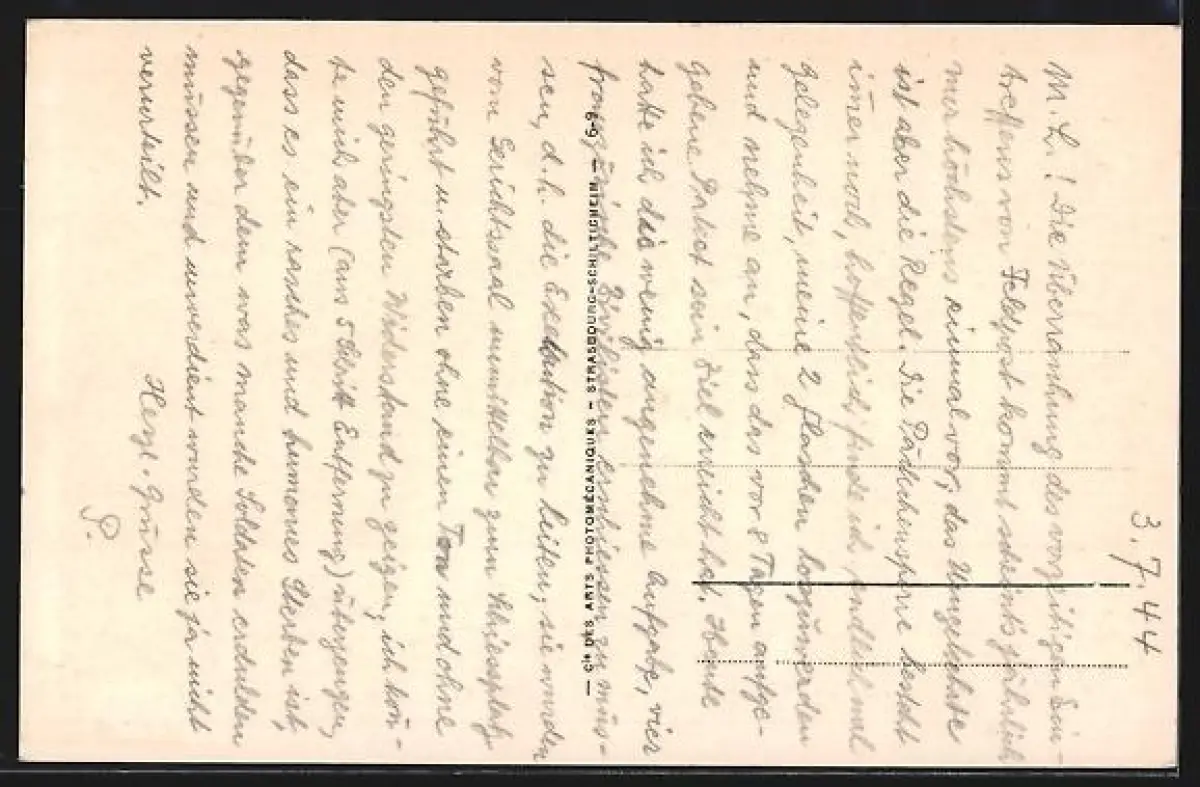 3.7.44
M. L.! Die Überraschung des vorzeitigen Ein-
treffens von Feldpost kommt scheints jährlich
nur höchstens einmal vor, das Umgekehrte
ist aber die Regel. Die Päckchensperre besteht
imer noch, hoffentlich finde ich endlich mal
Gelegenheit, meine 2 Flaschen loszuwerden
und nehme an, dass das vor 8 Tagen aufge-
gebene Paket sein Ziel erreicht hat. Heute
hatte ich das wenig angenehme Aufgabe, vier
französische Zivilisten erschiessen zu müs-
sen, d.h. die Exekution zu leiten, sie wurden
vom Gerichtssaal unmittelbar zum Schiessplatz
geführt u. starben ohne einen Ton und ohne
den geringsten Widerstand zu zeigen, ich kon-
te mich aber (aus 5 Schritt Entfernung) überzeugen,
dass es ein rasches und humanes Sterben ist,
gegenüber dem was manche Soldaten erdulden
müssen und unverdient wurden sie ja nicht
verurteilt.
Herzl. Grüsse
P.
— Cie DES ARTS PHOTOMECANIQUES - STRASBOURG-SCHILTIGHEIM —